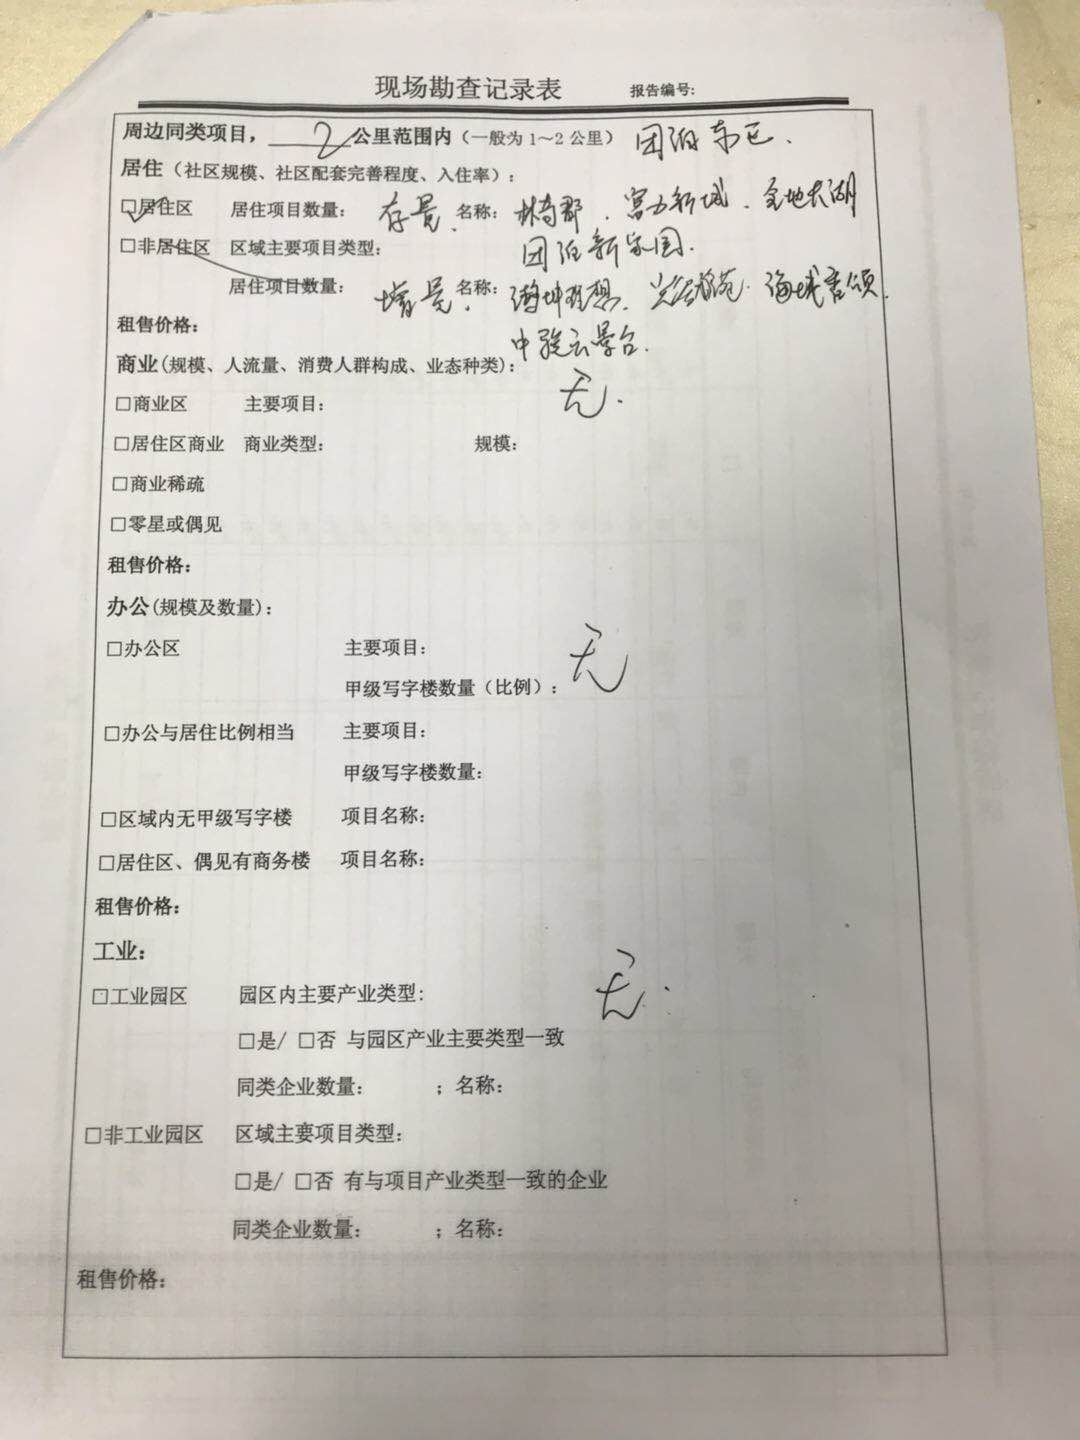 现场勘查记录表 报告编号:
周边同类项目，2公里范围内（一般为1～2公里） 团泊东区.
居住（社区规模、社区配套完善程度、入住率）:
☑居住区 居住项目数量: 存量. 名称: 富力新城. 金地大湖
□非居住区 区域主要项目类型: 团泊新家园.
居住项目数量: 增量. 名称:
租售价格: 中骏云景台.
商业(规模、人流量、消费人群构成、业态种类):
□商业区 主要项目: 无.
□居住区商业 商业类型: 规模:
□商业稀疏
□零星或偶见
租售价格:
办公(规模及数量):
□办公区 主要项目: 无
甲级写字楼数量（比例）:
□办公与居住比例相当 主要项目:
甲级写字楼数量:
□区域内无甲级写字楼 项目名称:
□居住区、偶见有商务楼 项目名称:
租售价格:
工业:
□工业园区 园区内主要产业类型: 无.
□是/ □否 与园区产业主要类型一致
同类企业数量: ；名称:
□非工业园区 区域主要项目类型:
□是/ □否 有与项目产业类型一致的企业
同类企业数量: ；名称:
租售价格: